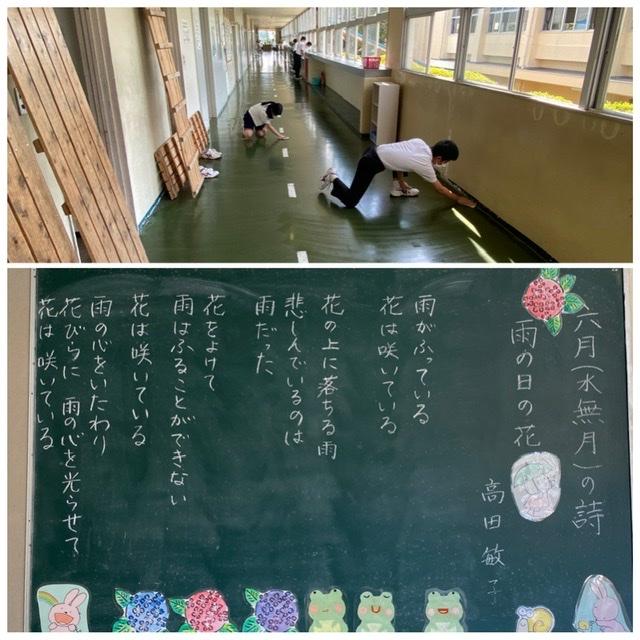 六月(水無月)の詩
雨の日の花
高田敏子
雨がふっている
花は咲いている
花の上に落ちる雨
悲しんでいるのは
雨だった
花をよけて
雨はふることができない
花は咲いている
雨の心をいたわり
花びらに 雨の心を光らせて
花は咲いている